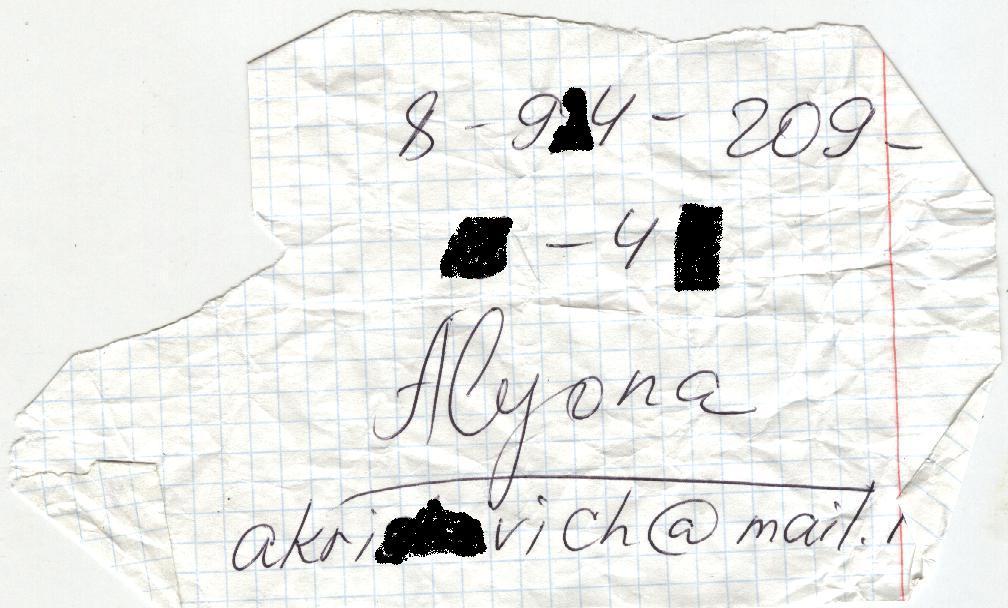 8-9 4-209-
-4
Alyona
akri vich@mail.